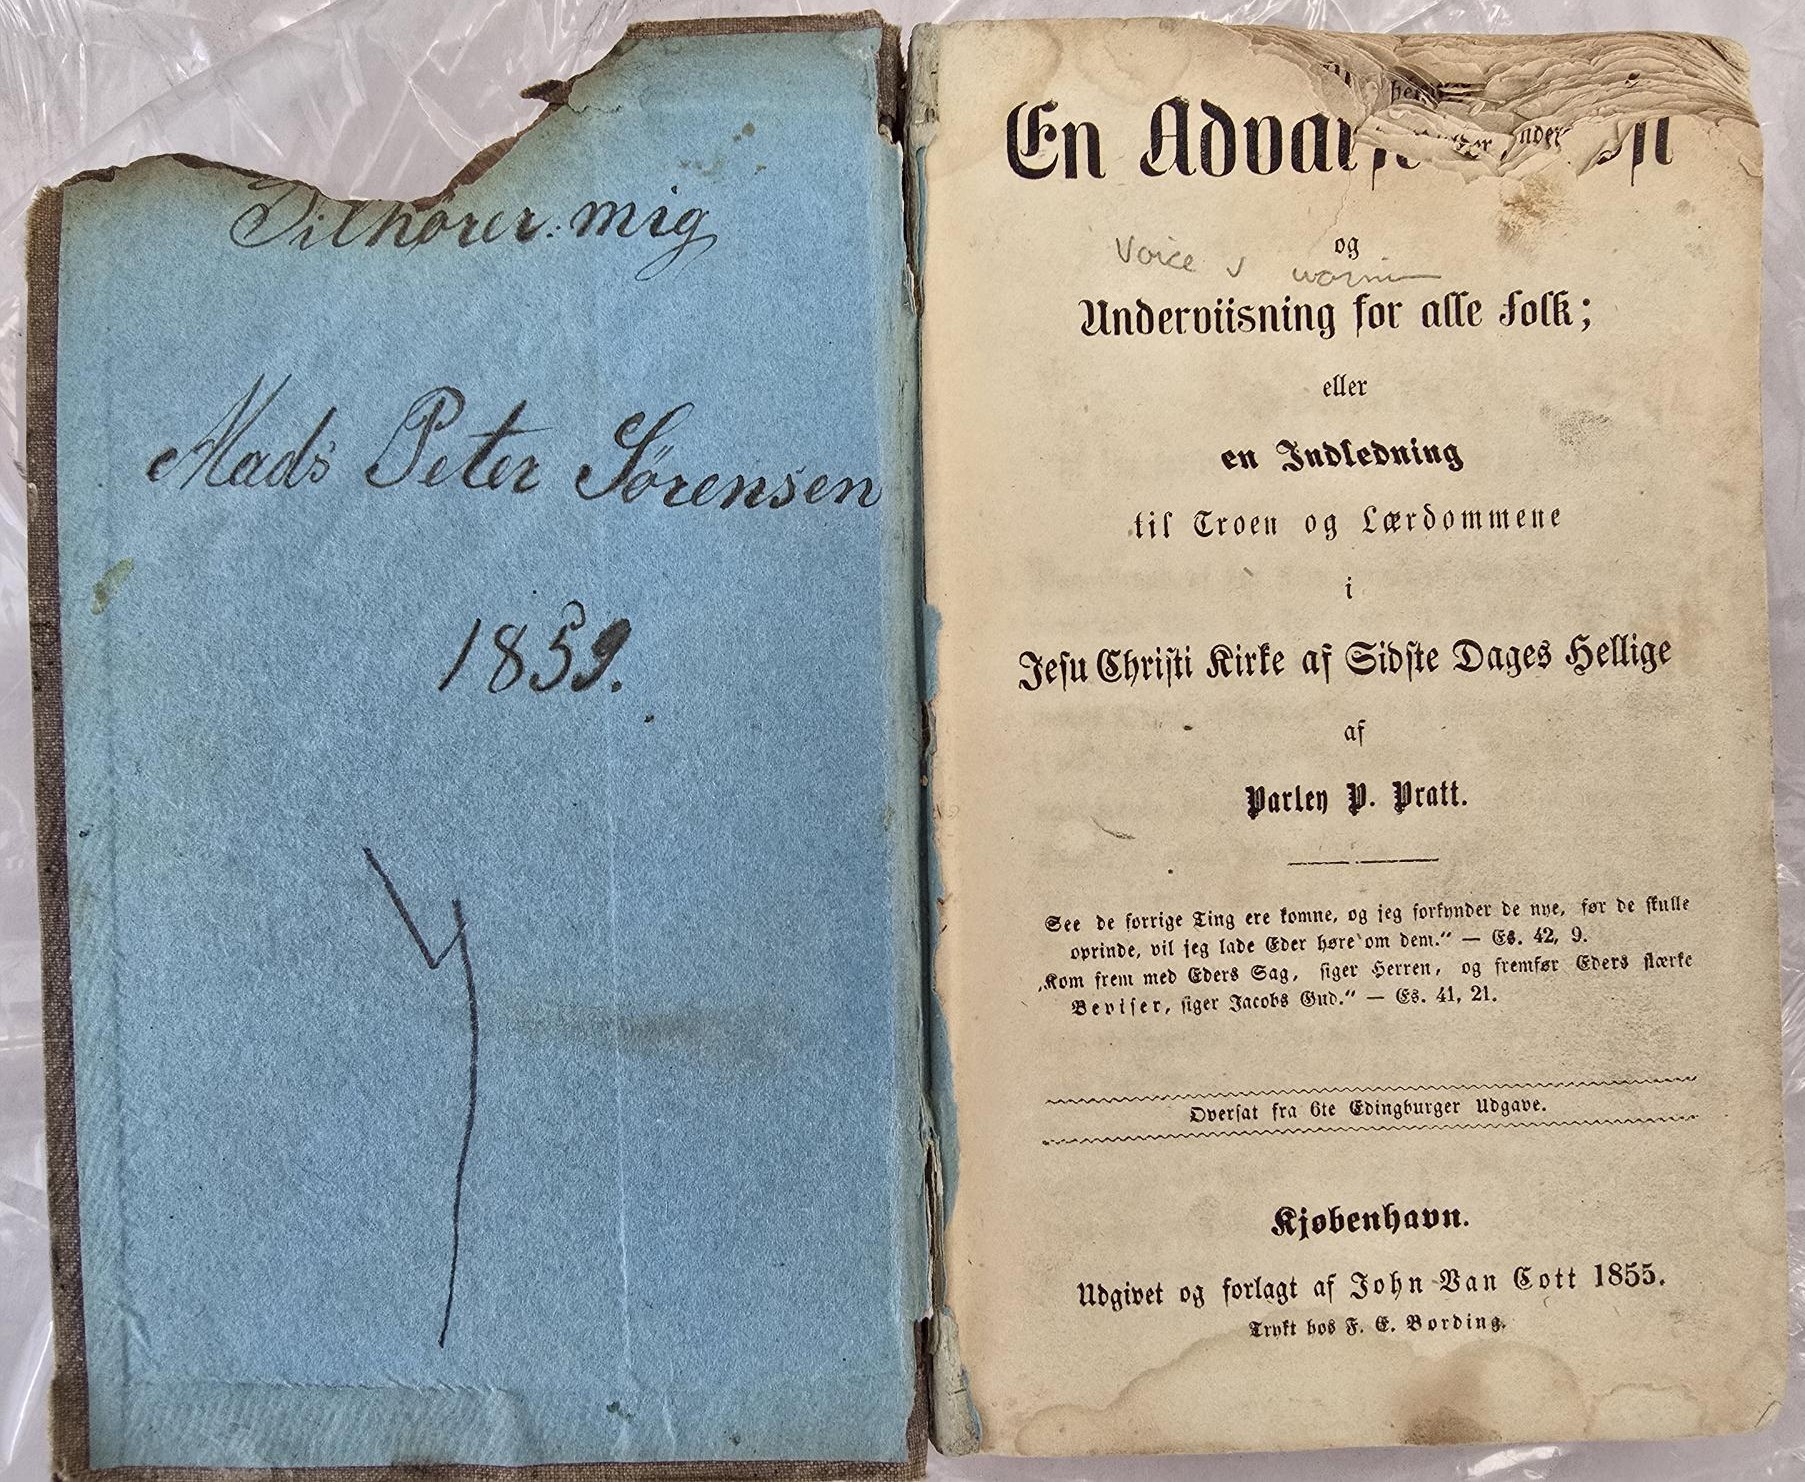 Tilhører mig
Mads Peter Sörensen
1859.
En
og
Voice
Underviisning for alle Folk;
eller
en Indledning
til Troen og Lærdommene
i
Jesu Christi Kirke af Sidste Dages Hellige
af
Parley P. Pratt.
See de forrige Ting ere komne, og jeg forkynder de nye, før de skulle
oprinde, vil jeg lade Eder høre om dem.“ — Es. 42, 9.
„Kom frem med Eders Sag, siger Herren, og fremfør Eders stærke
Beviser, siger Jacobs Gud.“ — Es. 41, 21.
Oversat fra 6te Edingburger Udgave.
Kjøbenhavn.
Udgivet og forlagt af John Van Cott 1855.
Trykt hos F. E. Bording.